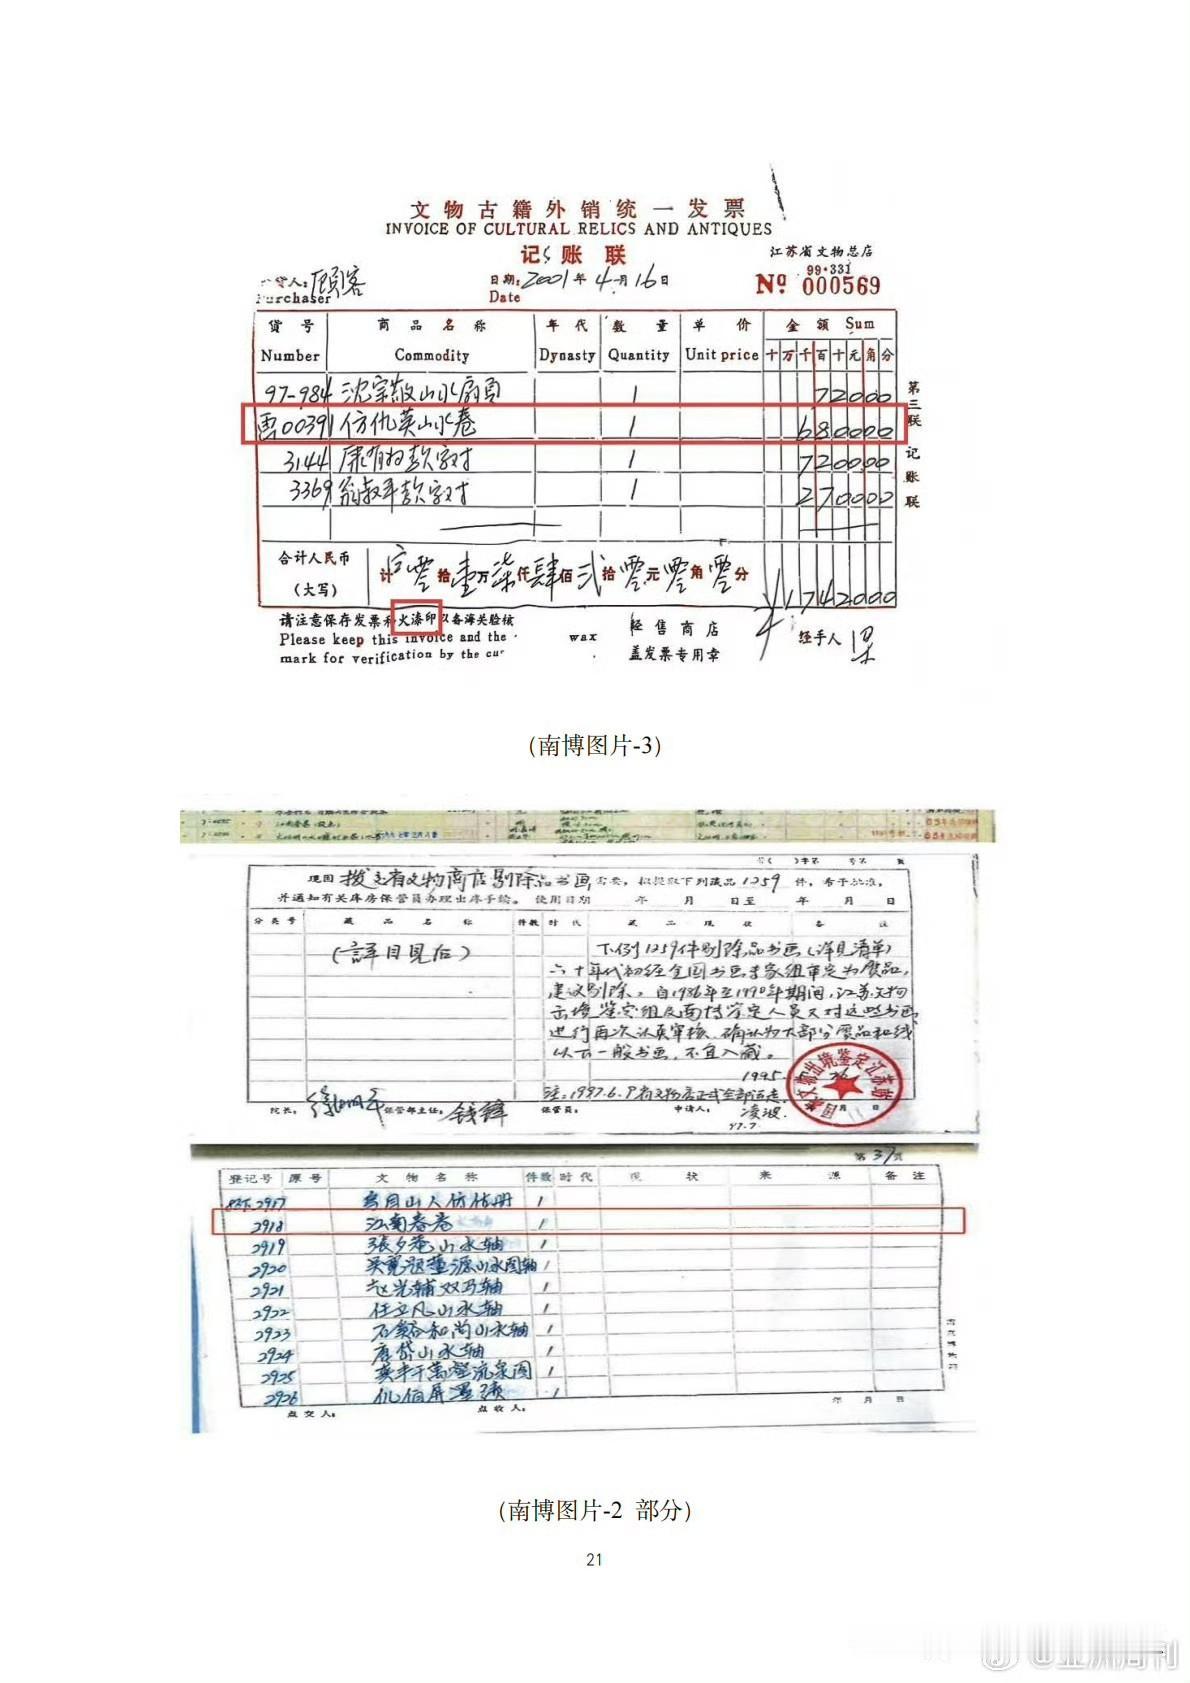 文物古籍外销统一发票
INVOICE OF CULTURAL RELICS AND ANTIQUES
记账联
江苏省文物总店
货人：顾客
Purchaser
日期：2001年4月16日
Date
99·331
Nº 000569
货号 商品名称 年代 数量 单价 金额 Sum
Number Commodity Dynasty Quantity Unit price 十万千百十元角分
97-984 沈宗敬山水扇页 1 72000
00391 仿仇英山水卷 1 680000
3144 康有为款字对 1 720000
3369 翁叔平款字对 1 270000
第三联 记账联
合计人民币（大写） 计 零拾壹万柒仟肆佰贰拾零元零角零分 ¥1742000
请注意保存发票和火漆印以备海关验核
Please keep this invoice and the wax
mark for verification by the cus
经售商店
盖发票专用章
经手人 梁
（南博图片-3）
现因拨交省文物商店剔除品书画需要，拟提取下列藏品1259件，希予批准，
并通知有关库房保管员办理出库手续。使用日期 年 月 日至 年 月 日
分类号 藏品名称 件数 时代 藏品现状 备注
（詳目見后）
下例1259件剔除品书画（详见清单）
六十年代初经全国书画专家组审定为赝品，
建议剔除，自1986年至1990年期间，江苏文物
出境鉴定组及南博鉴定人员又对这些书画
进行再次认真审核，确认为大部分赝品和线
以下一般书画，不宜入藏。
1995.
注：1997.6.9省文物店正式全部运走.
院长： 徐湖平 保管部主任： 钱锋 保管员： 申请人： 凌波.
97.7
第37页
登记号 原号 文物名称 件数 时代 现状 来源 备注
2917 仿古册 1
2918 江南春卷 1
2919 張夕菴山水轴 1
2920 吴寬题董源山水图轴 1
2921 赵光辅双马轴 1
2922 任立凡山水轴 1
2923 石谿和尚山水轴 1
2924 唐岱山水轴 1
2925 龚半千萬壑流泉图 1
2926 1
点交人： 点收人： 年 月 日
（南博图片-2 部分）
21
@亚洲周刊